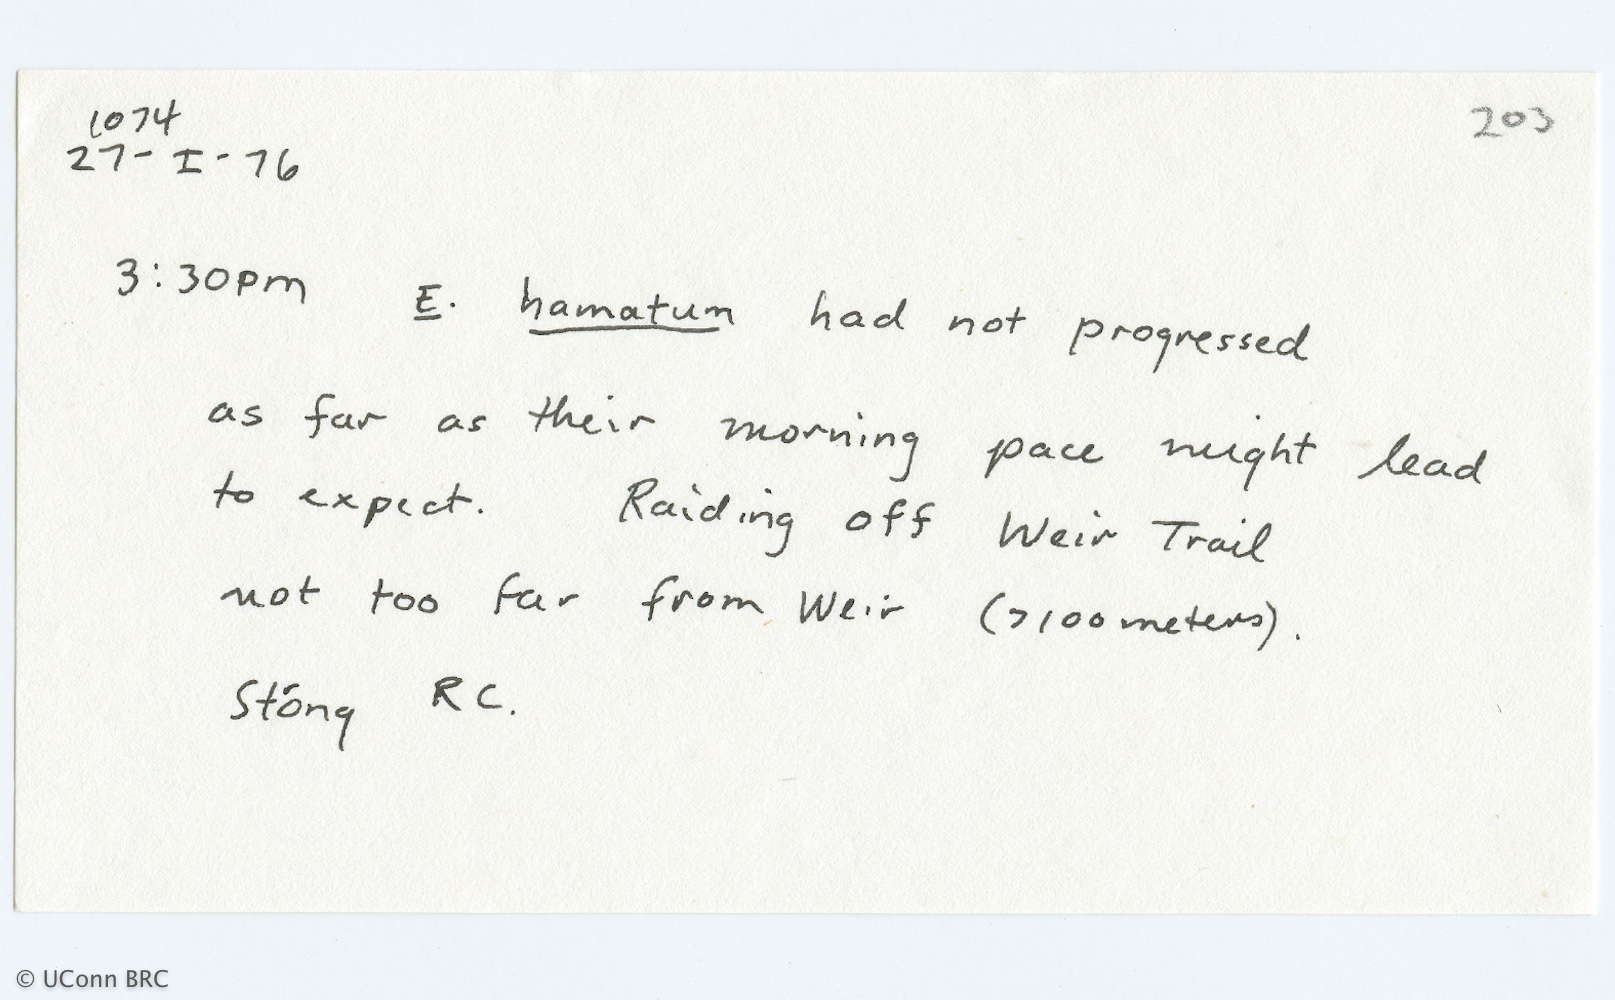 1074
203
27-I-76
3:30pm E. hamatum had not progressed
as far as their morning pace might lead
to expect. Raiding off Weir Trail
not too far from Weir (>100 meters).
Stong RC.
© UConn BRC